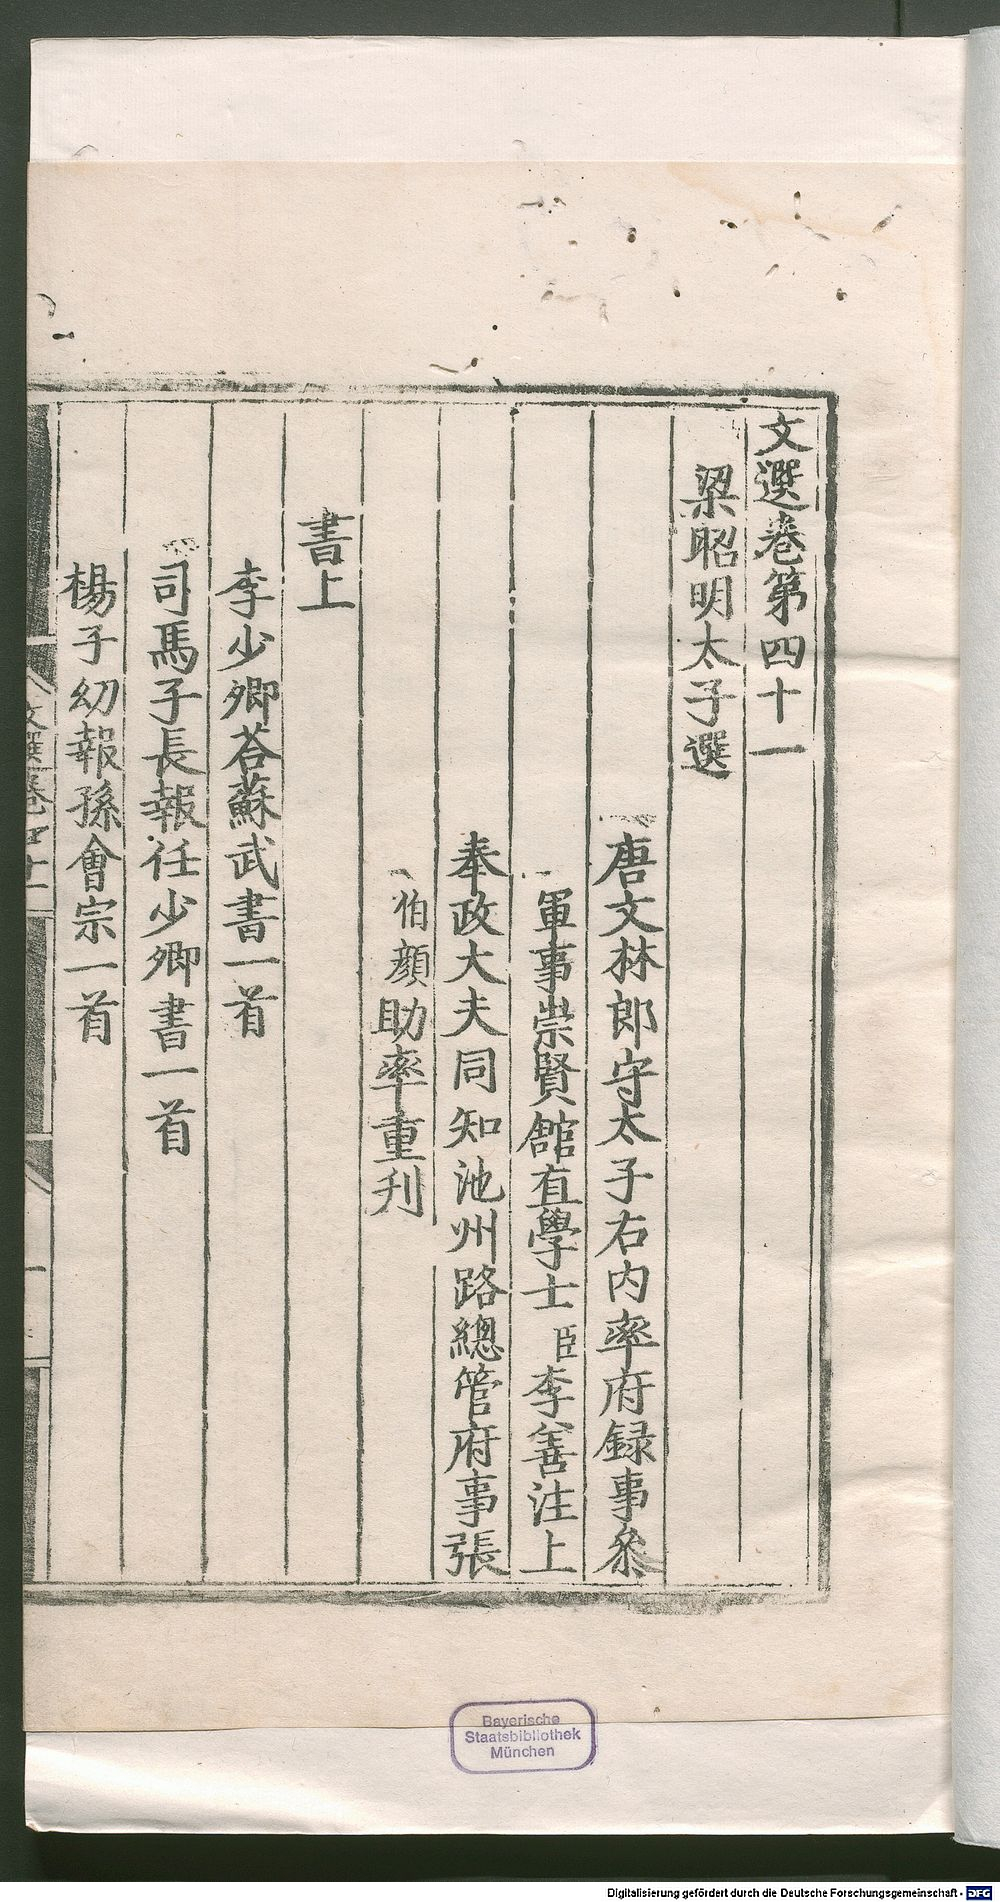 文選卷第四十一
梁昭明太子選
唐文林郎守太子右内率府録事參
軍事崇賢館直學士臣李善注上
奉政大夫同知池州路總管府事張
伯顔助率重刋
書上
李少卿荅蘇武書一首
司馬子長報任少卿書一首
楊子幼報孫會宗一首
文選卷四十一
Bayerische
Staatsbibliothek
München
Digitalisierung gefördert durch die Deutsche Forschungsgemeinschaft - DFG